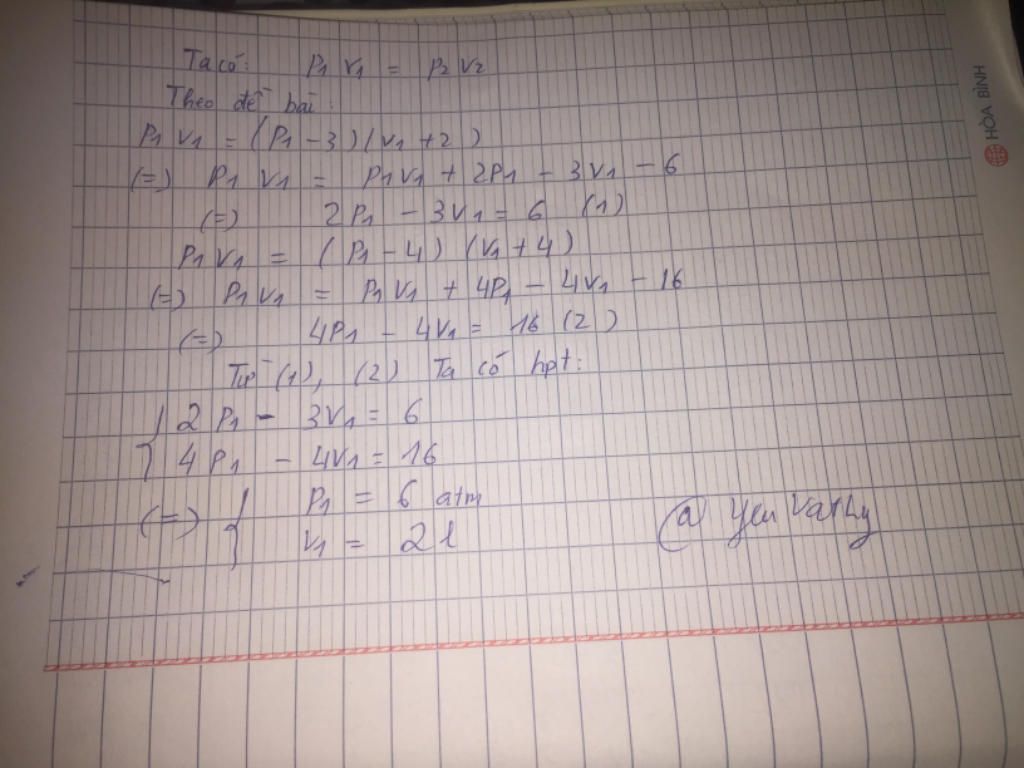 Ta có: P1 V1 = P2 V2
Theo đề bài:
P1 V1 = (P1 - 3) (V1 + 2)
(=) P1 V1 = P1V1 + 2P1 - 3V1 - 6
(=) 2P1 - 3V1 = 6 (1)
P1 V1 = (P1 - 4) (V1 + 4)
(=) P1 V1 = P1V1 + 4P1 - 4V1 - 16
(=) 4P1 - 4V1 = 16 (2)
Từ (1), (2) Ta có hpt:
{ 2P1 - 3V1 = 6
4P1 - 4V1 = 16
(=) { P1 = 6 atm
V1 = 2l
@ Yêu Vật Lý
HÒA BÌNH